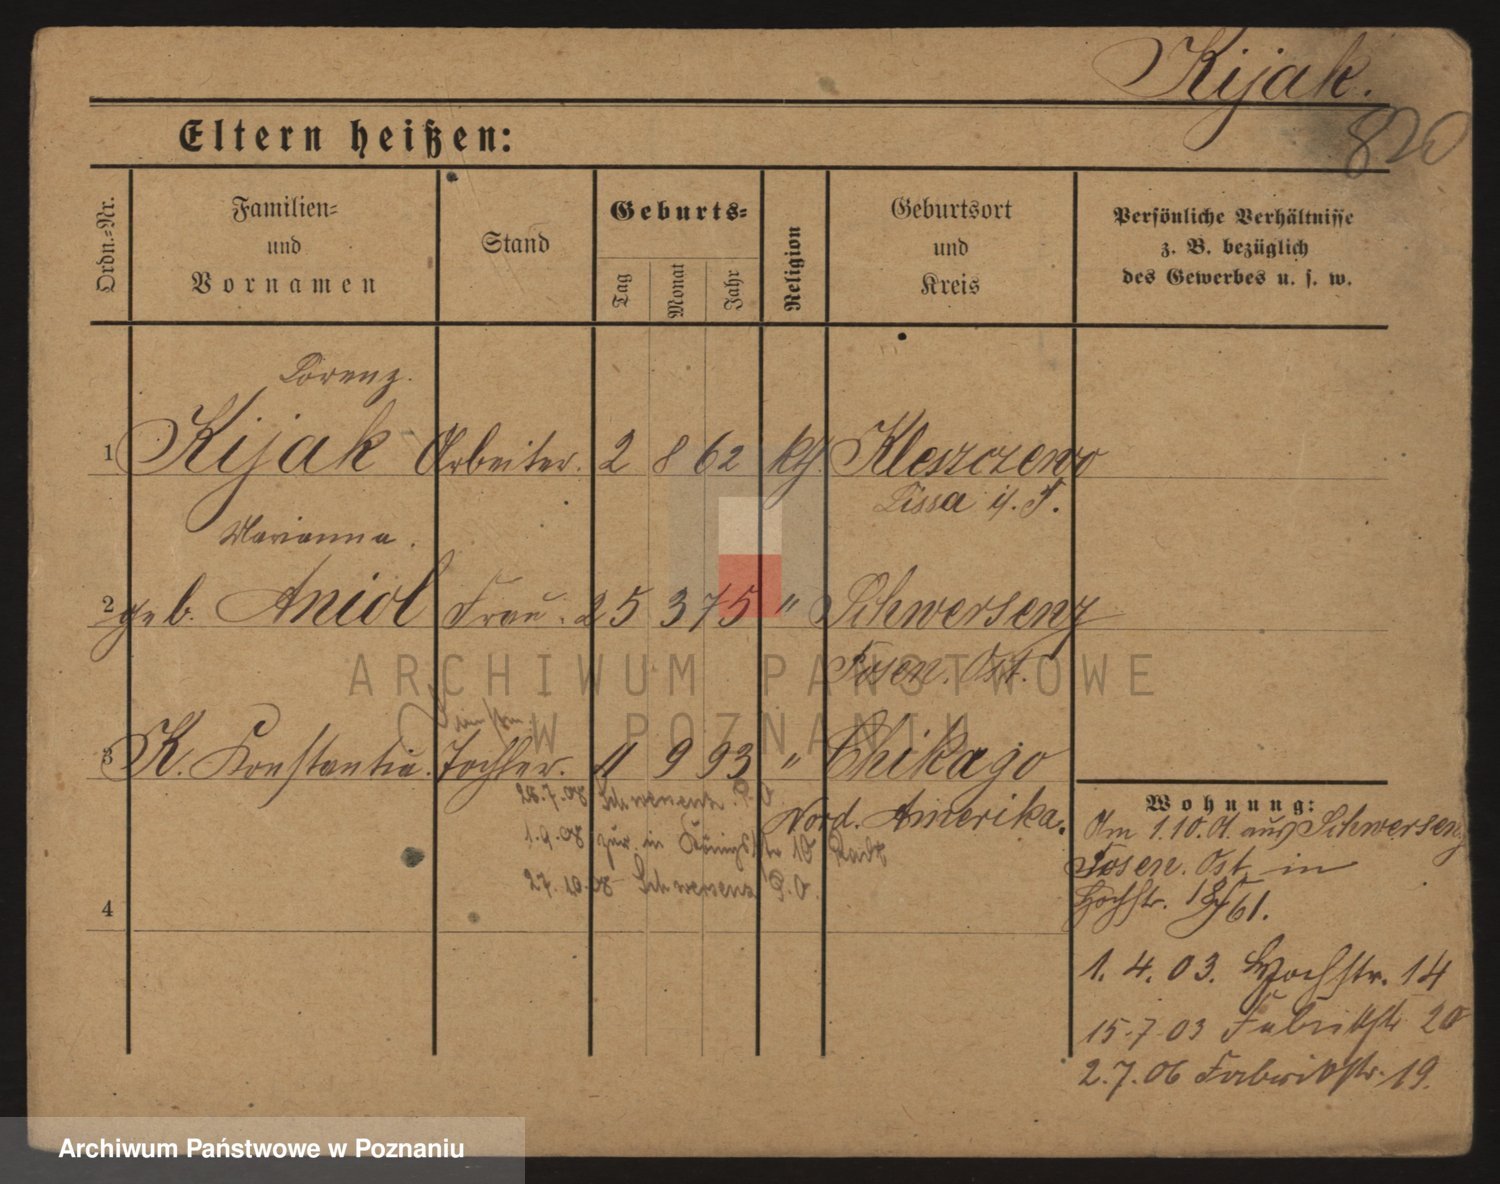 Kijak.
820
Eltern heißen:
Ordn.-Nr.
Familien-
und
Vornamen
Stand
Geburts-
Tag
Monat
Jahr
Religion
Geburtsort
und
Kreis
Persönliche Verhältnisse
z. B. bezüglich
des Gewerbes u. s. w.
Lorenz.
1 Kijak Arbeiter. 2 8 62 kth. Kleszczewo
Lissa i. P.
Marianna.
2 geb. Aniol Frau. 25 3 75 " Schwersenz
Posen. Ost.
3 K. Konstantia. Tochter. 11 9 93 " Chikago
Nord. Amerika.
28.7.08 Schwersenz P.O
1.9.08 zur. in Königstr 10
27.10.08 Schwersenz P.O.
4
Wohnung:
Am 1.10. 01. aus Schwersenz
Posen. Ost. in
Hochstr.
1. 4. 03. Hochstr. 14
15.7.03 Fabrikstr 20
2.7.06 Fabrikstr. 19.
ARCHIWUM PAŃSTWOWE
W POZNANIU
Archiwum Państwowe w Poznaniu